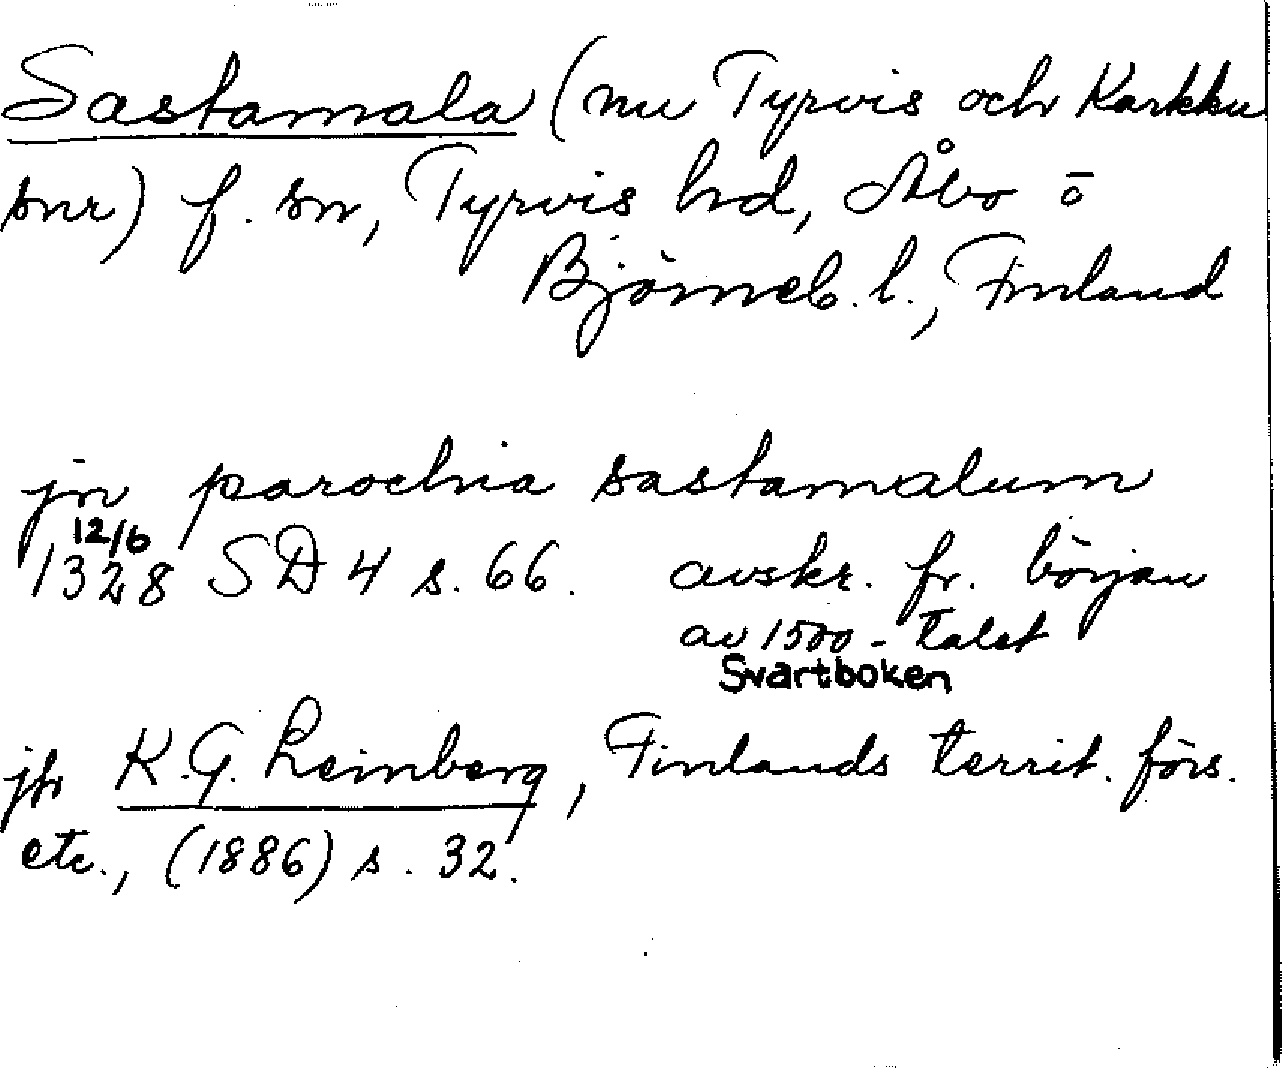 Sastamala (nu Tyrvis och Karkku
snr) f. sn, Tyrvis hd, Åbo o
Björneb. l., Finland
jn parochia sastamalum
12/6
1328 SD 4 s. 66. avskr. fr. början
av 1500-talet
Svartboken
jfr K.G. Leinberg, Finlands territ. förs.
etc., (1886) s. 32.